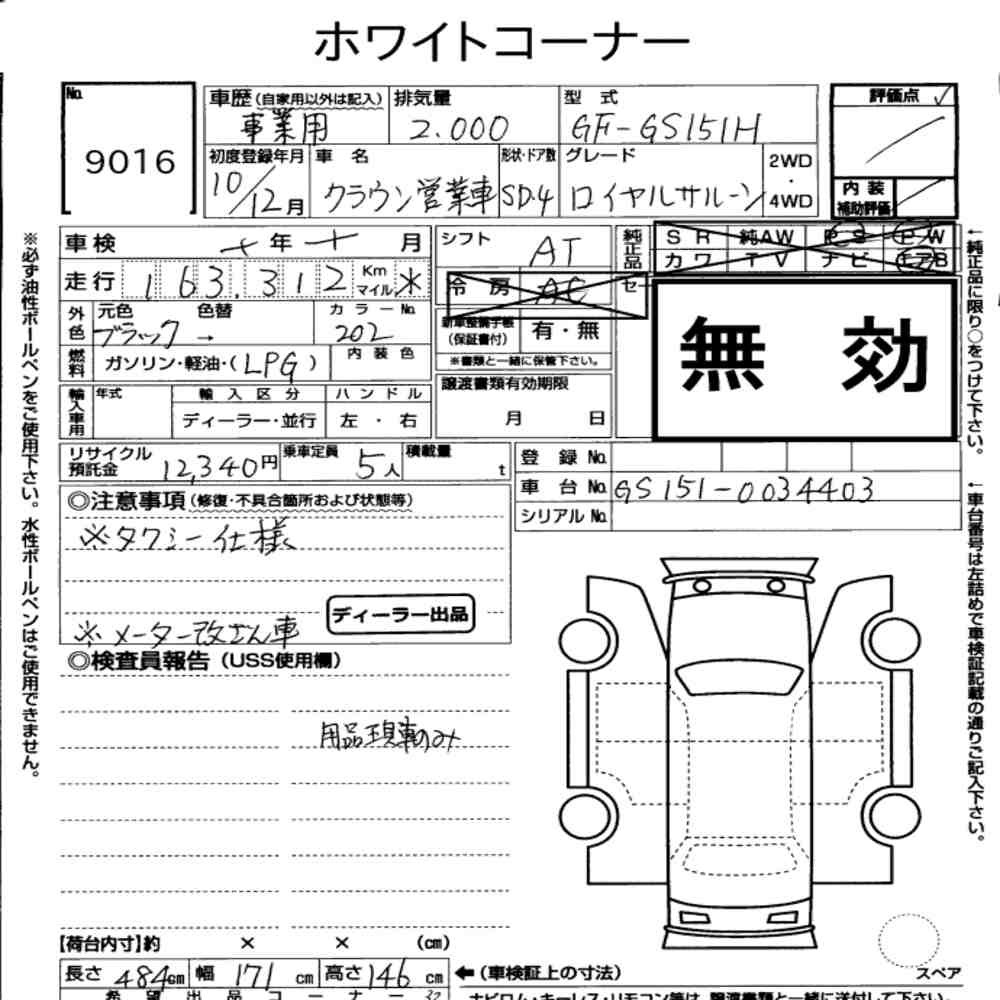 ホワイトコーナー
No. 9016
車歴(自家用以外は記入) 事業用
排気量 2.000
型式 GF-GS151H
評価点
初度登録年月 10/12月
車名 クラウン営業車
形状・ドア数 SD.4
グレード ロイヤルサルーン
2WD・4WD
内装補助評価
※必ず油性ボールペンをご使用下さい。水性ボールペンはご使用できません。
車検 年 月
走行 163.312 Km マイル *
シフト AT
冷房 AC
純正品
セ
SR 純AW PS PW
カワ TV ナビ エアB
無効
外色 元色 ブラック → 色替
カラーNo. 202
燃料 ガソリン・軽油・(LPG)
内装色
新車整備手帳(保証書付) 有・無
※書類と一緒に保管下さい。
輸入車用 年式 輸入区分 ハンドル
ディーラー・並行 左・右
譲渡書類有効期限
月 日
リサイクル預託金 12,340円
乗車定員 5人
積載量 t
登録No.
車台No. GS151-0034403
シリアルNo.
←純正品に限り○をつけて下さい。
←車台番号は左詰めで車検証記載の通りご記入下さい。
◎注意事項(修復・不具合箇所および状態等)
※タクシー仕様
ディーラー出品
※メーター改ざん車
◎検査員報告(USS使用欄)
用品現車のみ
【荷台内寸】約 × × (cm)
長さ 484cm 幅 171cm 高さ 146cm
←(車検証上の寸法)
スペア
希望出品コーナー
ナビロム・キーレス・リモコン等は、譲渡書類と一緒に送付して下さい。